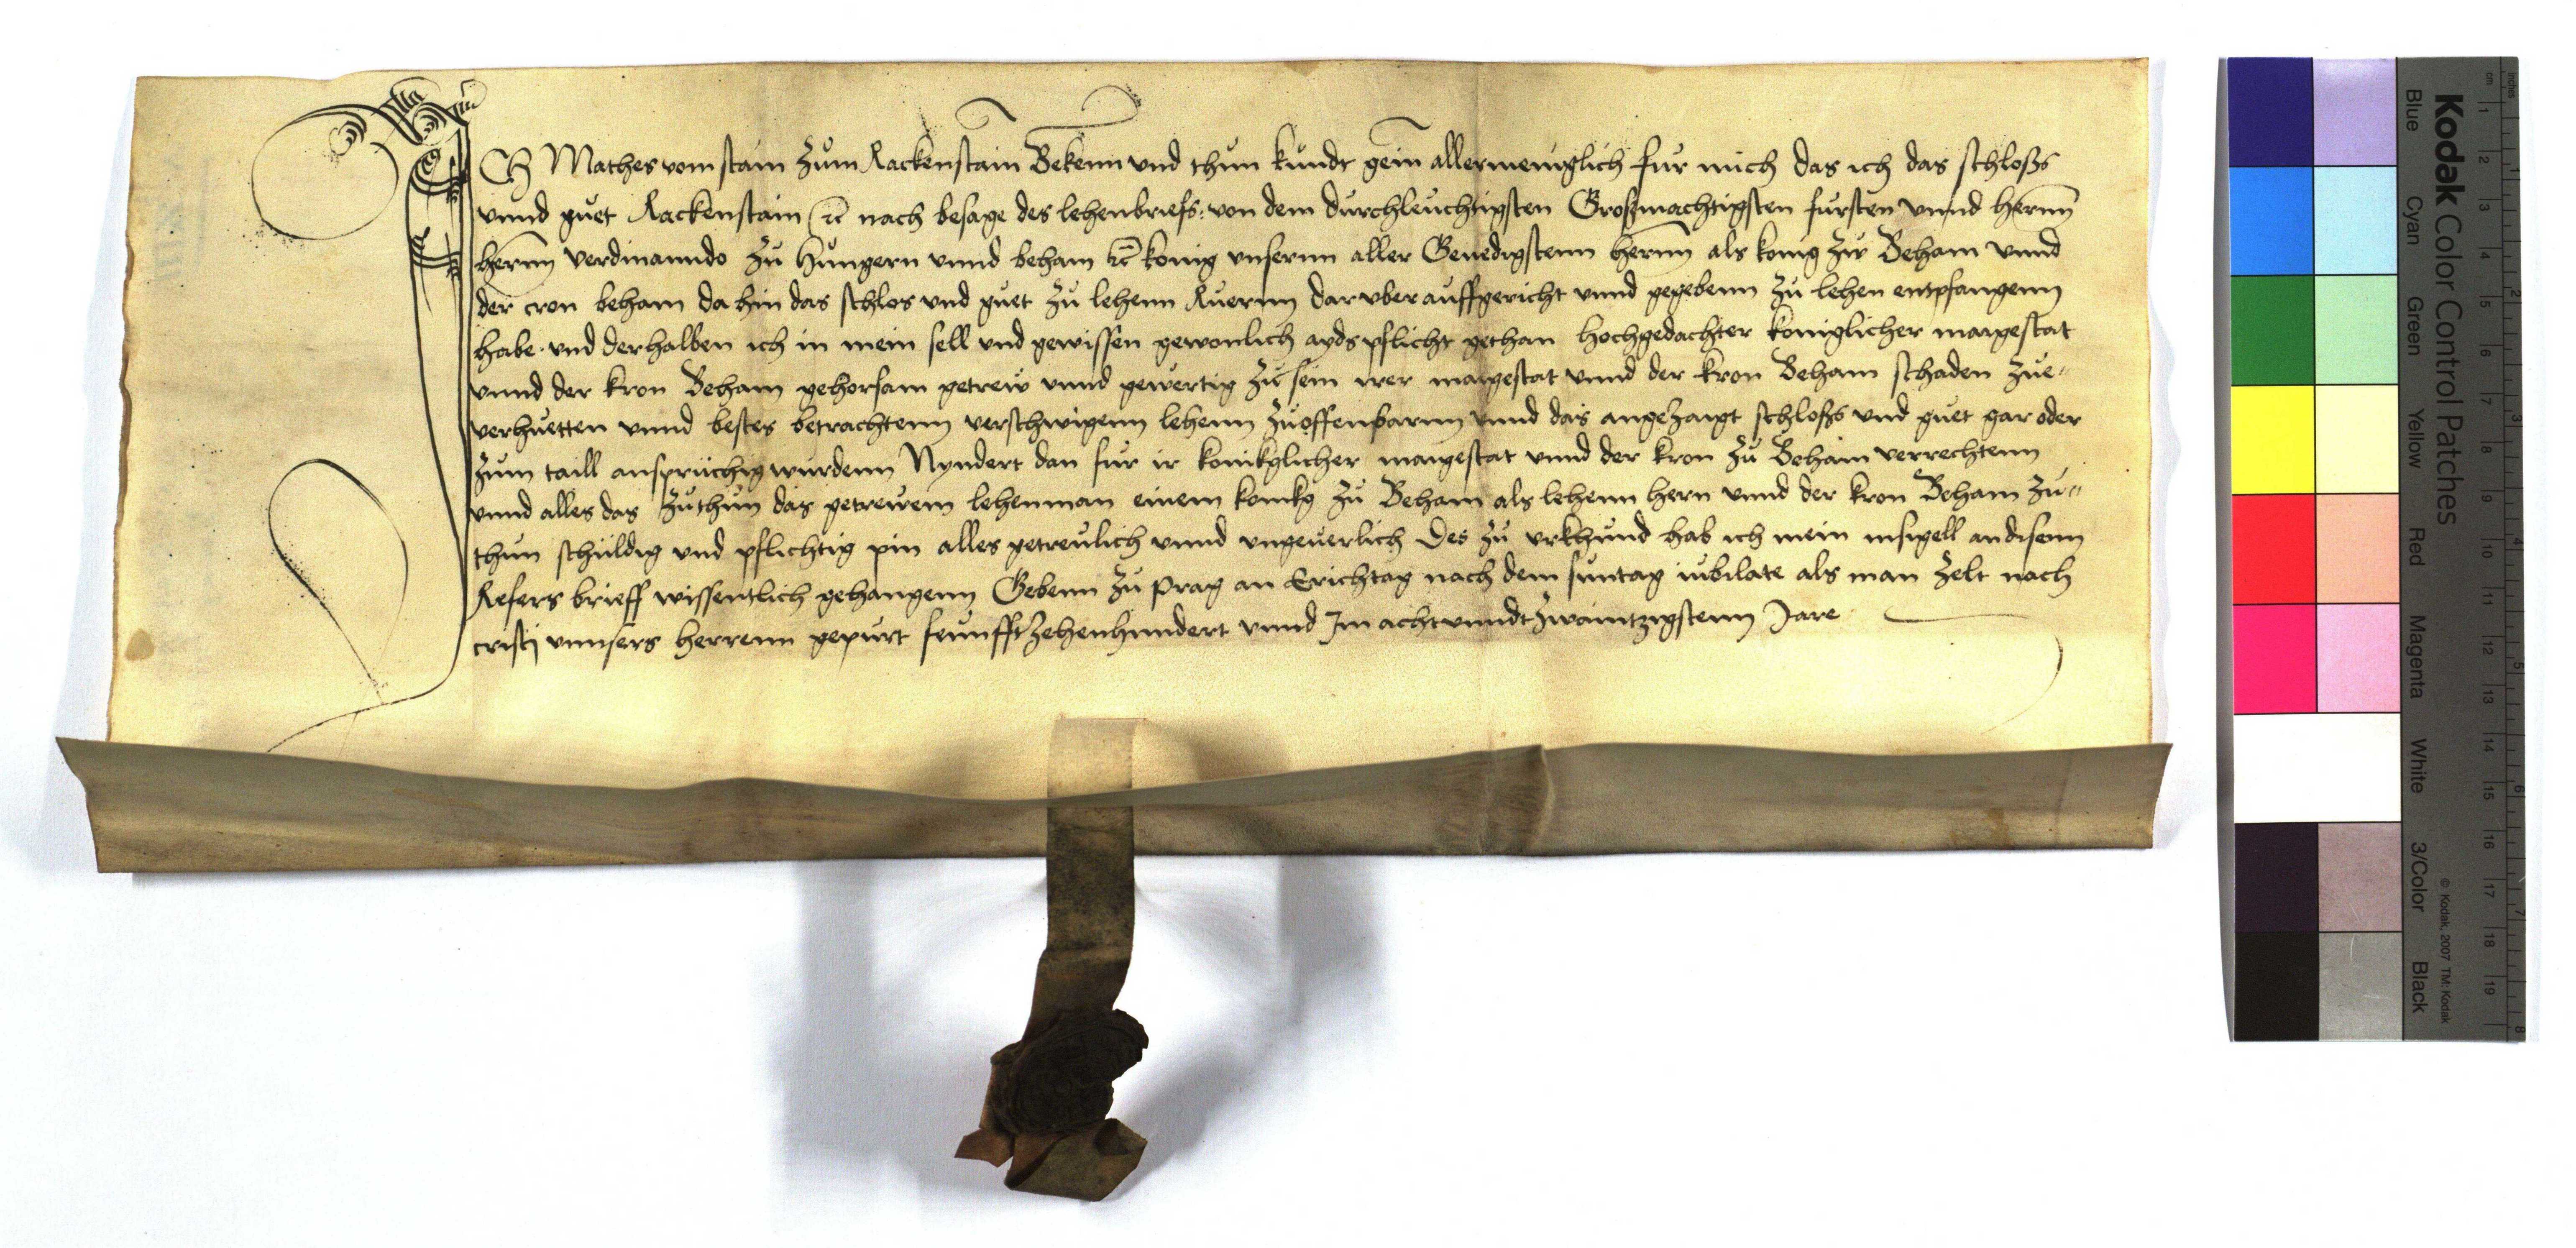 ICh Mathes vom stain zum Rackenstain Bekenn und thun kundt gein allermeniglich fur mich das ich das schloß
vnnd guet Rackenstain ꝛc nach besage des lehenbriefs: von dem durchleuchtigsten Großmachtigsten fursten vnnd hernn
hernn verdinanndo zu hungern vnnd beham ꝛc konig vnsernn aller Genedigstenn hernn als konig zw Beham vnnd
der cron beham da hin das schlos vnd guet zu lehenn Ruernn dar vber auffgericht vnnd gegebenn zu lehen entpfangenn
habe. vnd derhalben ich in mein sell vnd gewissen gewonlich ayds pflicht gethan hochgedachter koniglicher maiestat
vnnd der kron Beham gehorsam getrew vnnd gewertig zu sein irer maiestat vnnd der kron Beham schaden zue"
verhuetten vnnd bestes betrachtenn verschwigenn lehenn zuoffenbarnn vnnd das angezaigt schloß vnd guet gar oder
zum taill anspruchig wurdenn Nyndert dan fur ir konikglicher maiestat vnnd der kron zu Beham verrechtenn
vnnd alles das zuthun das getreuem lehenman einem konikg zu Beham als lehenn hern vnnd der kron Beham zu"
thun schuldig vnd pflichtig pin alles getreulich vnnd vngeuerlich Des zu vrkhund hab ich mein insigell an disenn
Refers brieff wissentlich gehangenn Gebenn zu Prag an Erichtag nach dem suntag iubilate als man zelt nach
cristj vnnsers herrenn gepurt feunfftzehenhundert vnnd Im achtvnndtzwaintzigstenn Jare
Kodak Color Control Patches
Blue Cyan Green Yellow Red Magenta White 3/Color Black
© Kodak, 2007 TM: Kodak
cm 1 2 3 4 5 6 7 8 9 10 11 12 13 14 15 16 17 18 19
inches 1 2 3 4 5 6 7 8